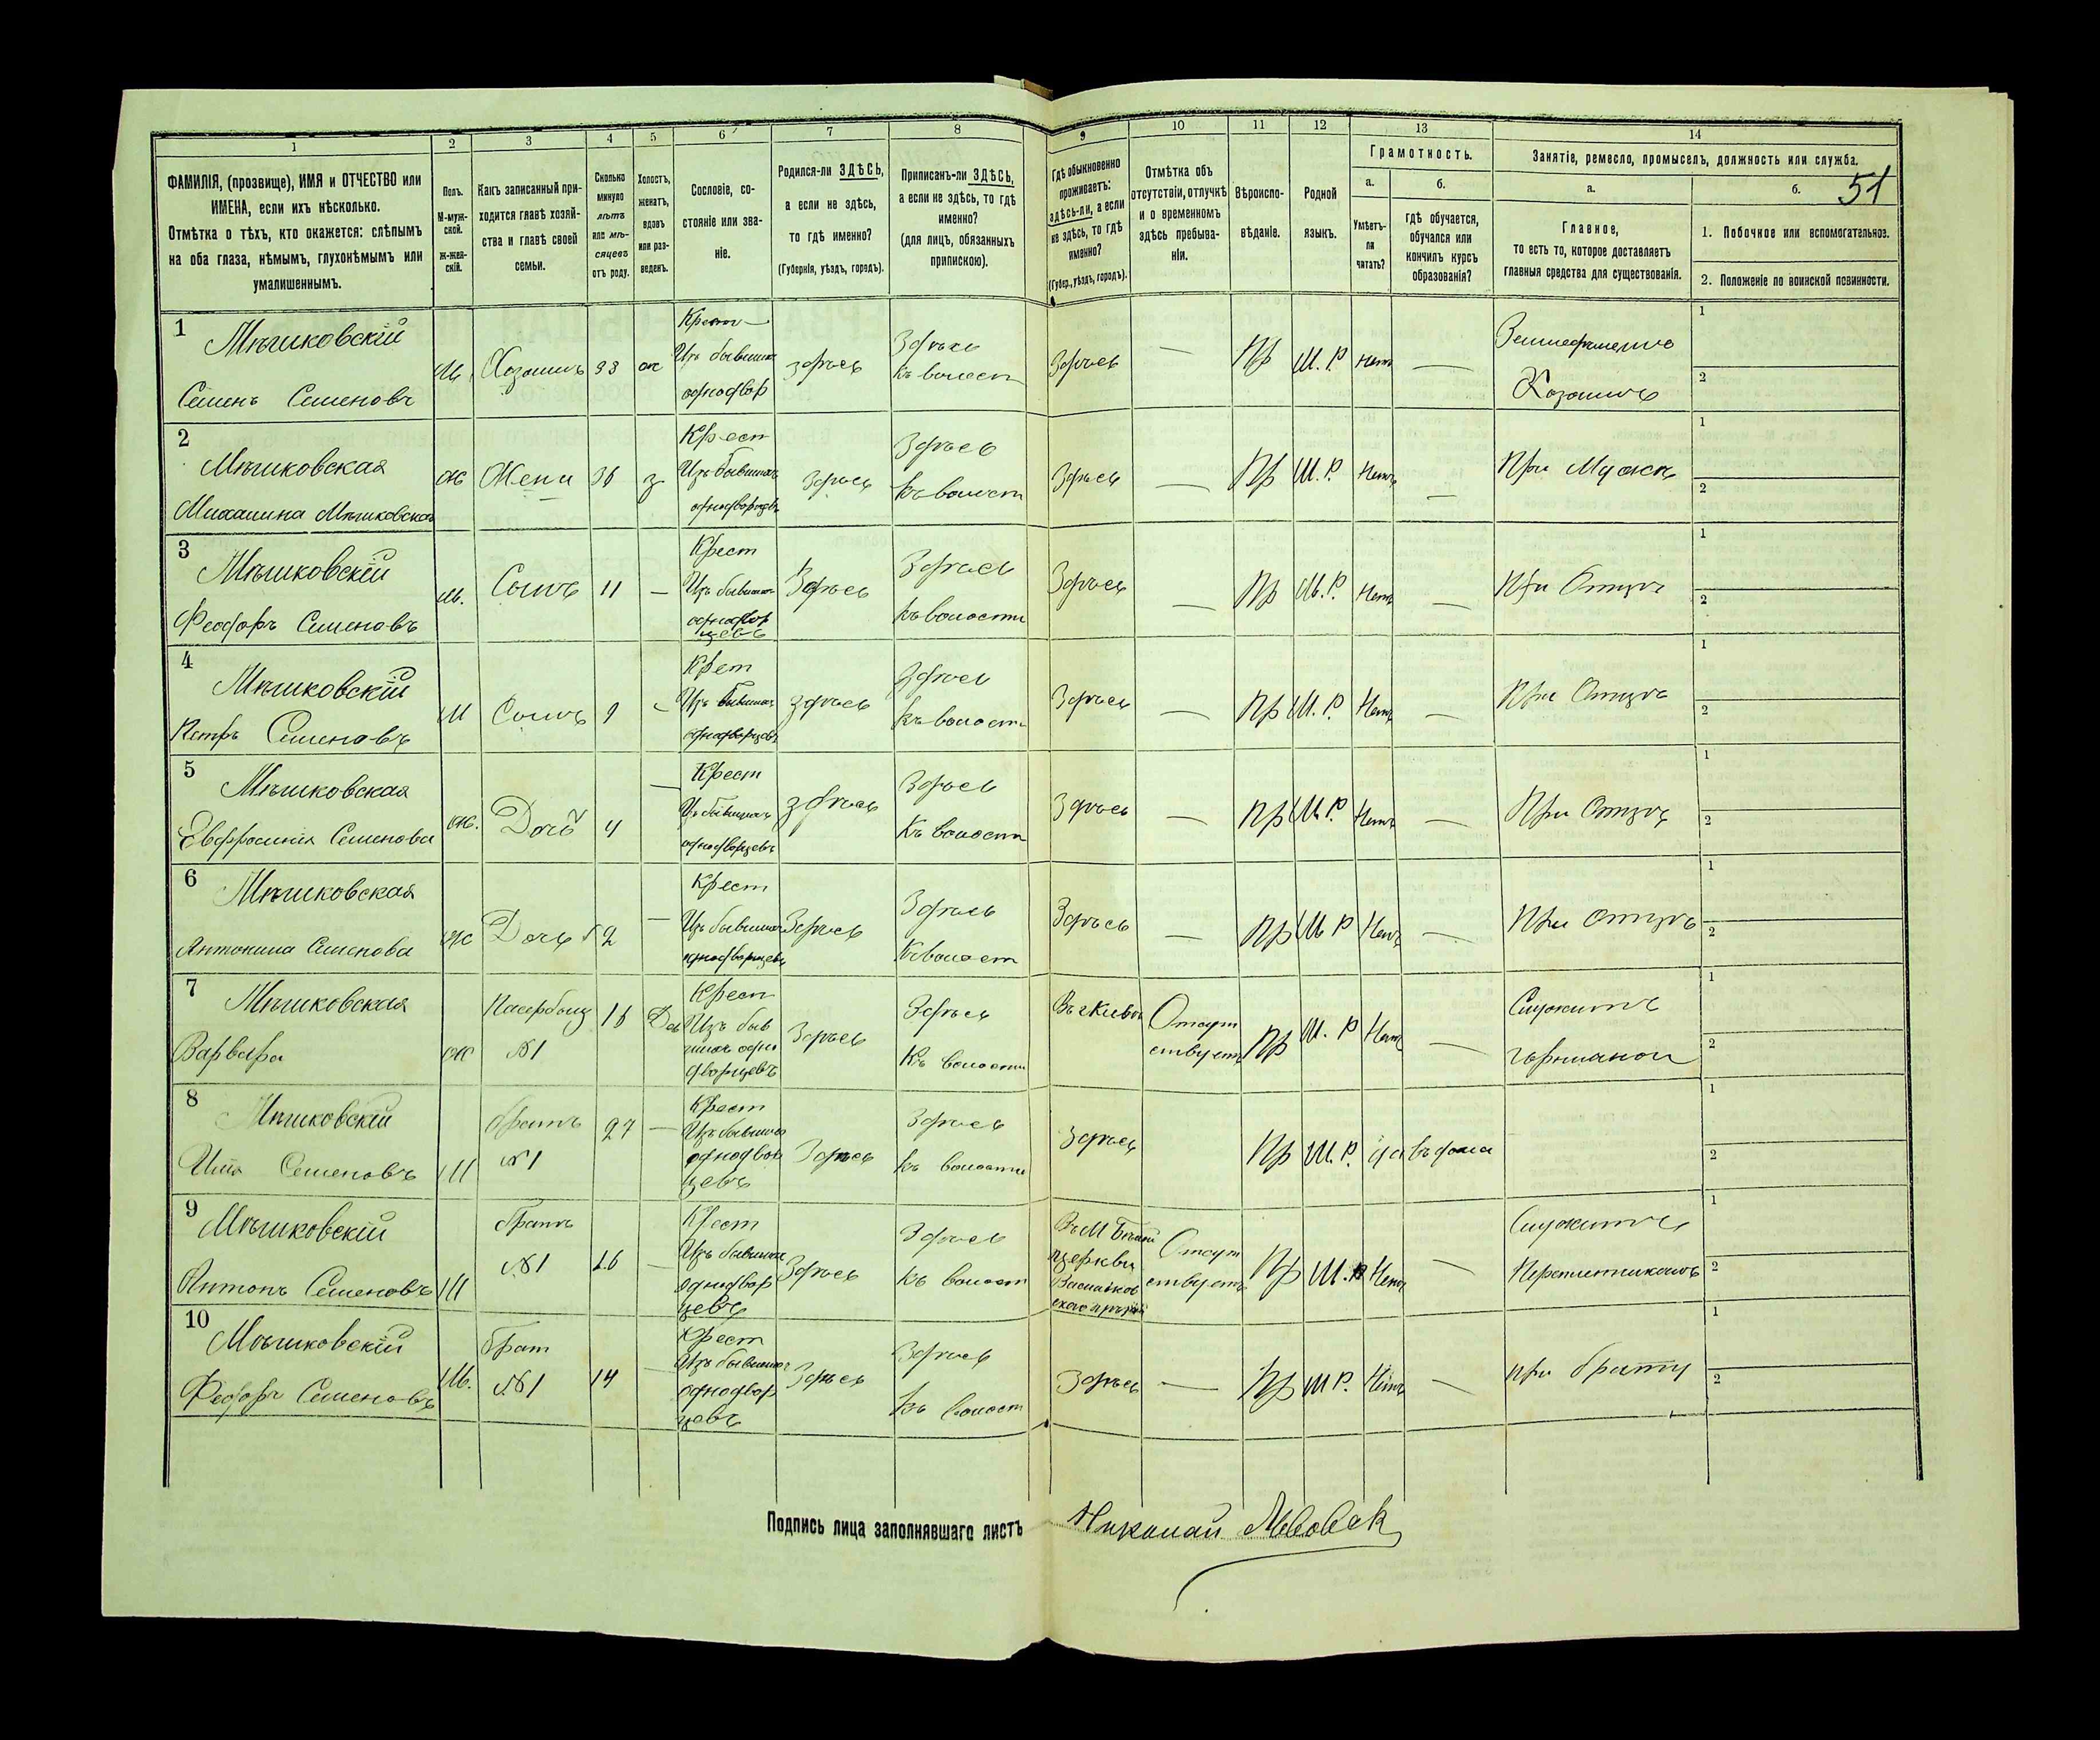 1 2 3 4 5 6 7 8 9 10 11 12 13 14
51
ФАМИЛІЯ, (прозвище), ИМЯ и ОТЧЕСТВО или
ИМЕНА, если ихъ нѣсколько.
Отмѣтка о тѣхъ, кто окажется: слѣпымъ
на оба глаза, нѣмымъ, глухонѣмымъ или
умалишеннымъ.
Полъ.
М-муж-
ской.
Ж-жен-
скій.
Какъ записанный при-
ходится главѣ хозяй-
ства и главѣ своей
семьи.
Сколько
минуло
лѣтъ
или мѣ-
сяцевъ
отъ роду.
Холостъ,
женатъ,
вдовъ
или раз-
веденъ.
Сословіе, со-
стояніе или зва-
ніе.
Родился-ли ЗДѢСЬ,
а если не здѣсь,
то гдѣ именно?
(Губернія, уѣздъ, городъ).
Приписанъ-ли ЗДѢСЬ,
а если не здѣсь, то гдѣ
именно?
(для лицъ, обязанныхъ
припискою).
Гдѣ обыкновенно
проживаетъ:
здѣсь-ли, а если
не здѣсь, то гдѣ
именно?
(Губер., уѣздъ, городъ).
Отмѣтка объ
отсутствіи, отлучкѣ
и о временномъ
здѣсь пребыва-
ніи.
Вѣроиспо-
вѣданіе.
Родной
языкъ.
Грамотность.
а.
Умѣетъ-
ли
читать?
б.
гдѣ обучается,
обучался или
кончилъ курсъ
образованія?
Занятіе, ремесло, промыселъ, должность или служба.
а.
Главное,
то есть то, которое доставляетъ
главныя средства для существованія.
б.
1. Побочное или вспомогательное.
2. Положеніе по воинской повинности.
1
Мѣшковскій
Семенъ Семеновъ
М
Хозяинъ
ж
Крест
Изъ бывших
однодвор
здѣсь
Здѣсь
къ волост
Здѣсь
—
Пр
М. Р.
Нетъ
—
Хозяинъ
1
2
2
Мѣшковская
Михалина Мѣшковская
Ж
Жена
36
з
Крест
Изъ бывшихъ
однодворцевъ
Здѣсь
Здѣсь
къ волост
Здѣсь
—
Пр
М. Р.
Нетъ
—
При Мужѣ
1
2
3
Мѣшковскій
Феодоръ Семеновъ
М.
Сынъ
11
—
Крест
Изъ бывших
однодвор
цевъ
Здѣсь
Здѣсь
къ волости
Здѣсь
—
Пр
М. Р.
Нетъ
—
При Отцѣ
1
2
4
Мѣшковскій
Петръ Семеновъ
М
Сынъ
9
—
Крет
Изъ бывших
однодворцевъ
здѣсь
Здѣсь
къ волости
Здѣсь
—
Пр
М. Р.
Нетъ
—
При Отцѣ
1
2
5
Мѣшковская
Евфросинія Семенова
Ж.
Дочь
4
—
Крест
Изъ бывшихъ
однодворцевъ
здѣсь
Здѣсь
Къ волости
Здѣсь
—
Пр
М. Р
Нетъ
—
При Отцѣ
1
2
6
Мѣшковская
Антонина Семенова
Ж
Дочь
2
—
Крест
Изъ бывших
однодворцевъ
Здѣсь
Здѣсь
Къ волост
Здѣсь
—
Пр
М Р
Нетъ
—
При Отцѣ
1
2
7
Мѣшковская
Варвара
Ж
№1
Крест
Изъ быв
шихъ одно
дворцевъ
Здѣсь
Здѣсь
Къ волости
Въ г Киевѣ
Отсут
ствуетъ
Пр
М. Р
Нетъ
—
Служитъ
горничной
1
2
8
Мѣшковскій
Семеновъ
М
братъ
№1
27
—
Крест
Изъ бывших
однодвор
цевъ
Здѣсь
Здѣсь
къ волости
Здѣсь
Пр
М. Р.
въ дома
1
2
9
Мѣшковскій
Антонъ Семеновъ
М
братъ
№1
—
Крест
Изъ бывших
однодвор
цевъ
Здѣсь
Здѣсь
къ волост
Въ М Бѣлой
церкви
Васильков
Отсут
ствуетъ
Пр
М. Р
Нетъ
—
Служитъ
1
2
10
Мѣшковскій
Федоръ Семеновъ
М.
брат
№1
14
—
Крест
Изъ бывших
однодвор
цевъ
Здѣсь
Здѣсь
къ волост
Здѣсь
—
Пр
М Р.
Нетъ
—
при брату
1
2
Подпись лица заполнявшаго листъ
Николай